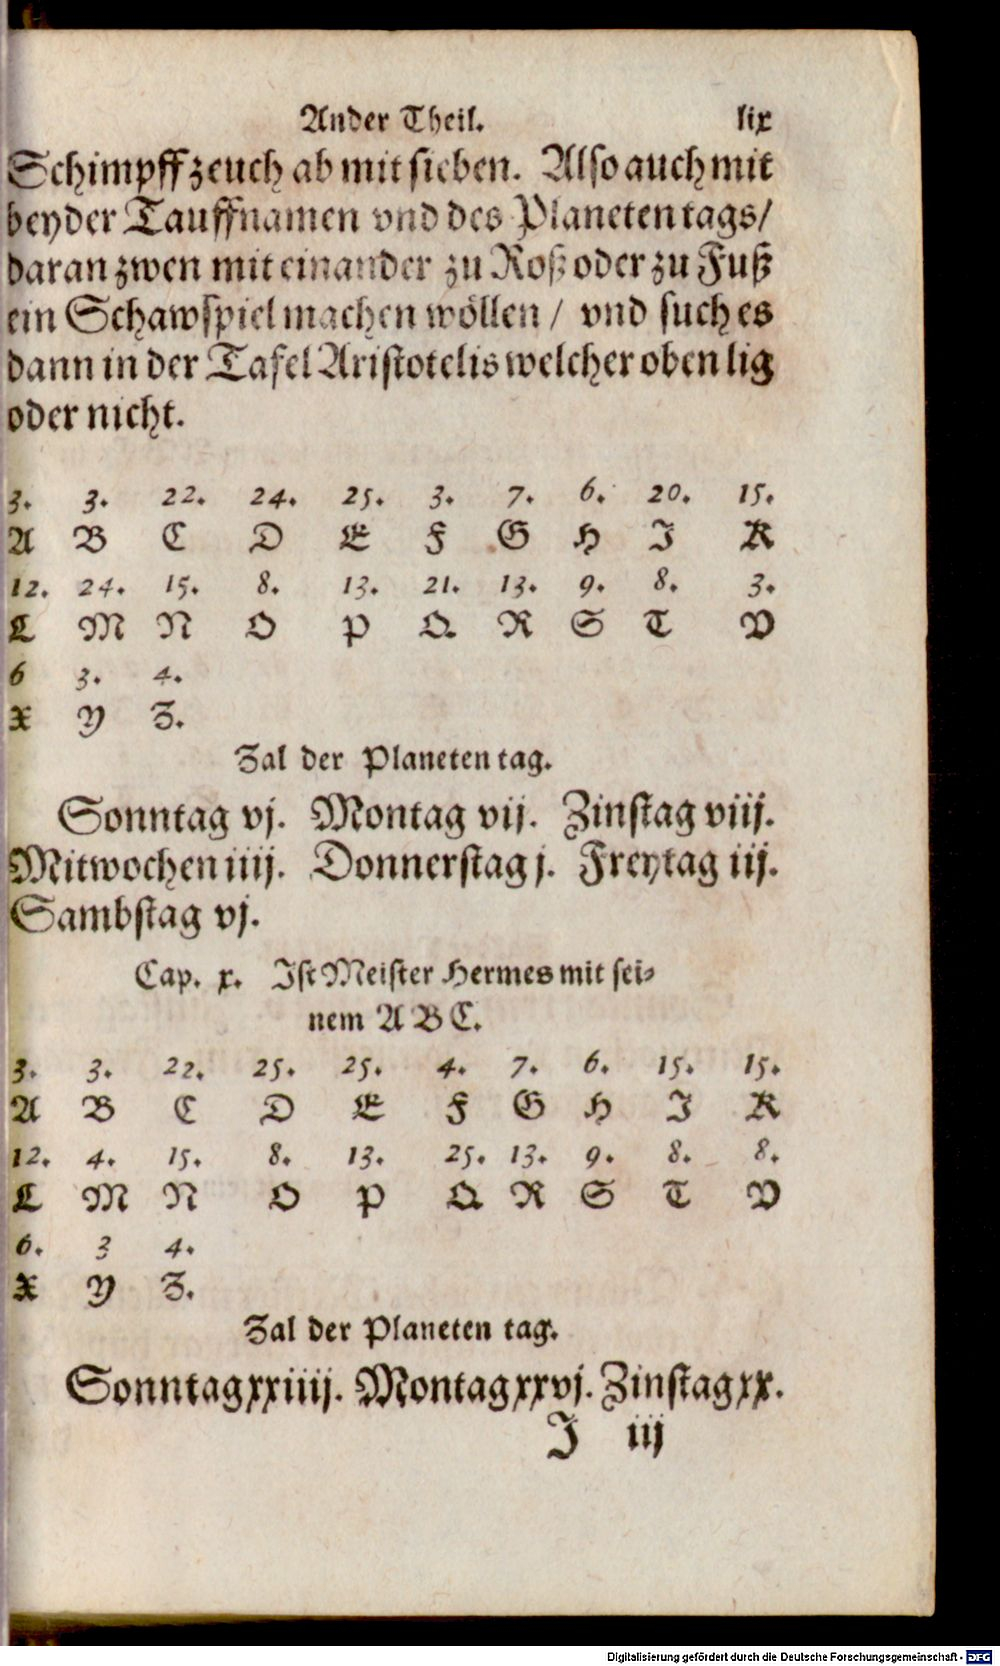 Ander Theil. lix
Schimpff zeuch ab mit sieben. Also auch mit
beyder Tauffnamen vnd des Planeten tags/
daran zwen mit einander zu Roß oder zu Fuß
ein Schawspiel machen wöllen / vnd such es
dann in der Tafel Aristotelis welcher oben lig
oder nicht.
3. 3. 22. 24. 25. 3. 7. 6. 20. 15.
A B C D E F G H I K
12. 24. 15. 8. 13. 21. 13. 9. 8. 3.
L M N O P Q R S T V
6 3. 4.
X Y Z.
Zal der Planeten tag.
Sonntag vj. Montag vij. Zinstag viij.
Mitwochen iiij. Donnerstag j. Freytag iij.
Sambstag vj.
Cap. x. Ist Meister Hermes mit sei-
nem A B C.
3. 3. 22. 25. 25. 4. 7. 6. 15. 15.
A B C D E F G H I K
12. 4. 15. 8. 13. 25. 13. 9. 8. 8.
L M N O P Q R S T V
6. 3 4.
X Y Z.
Zal der Planeten tag.
Sonntag xxiiij. Montag xxvj. Zinstag xx.
I iij
Digitalisierung gefördert durch die Deutsche Forschungsgemeinschaft - DFG